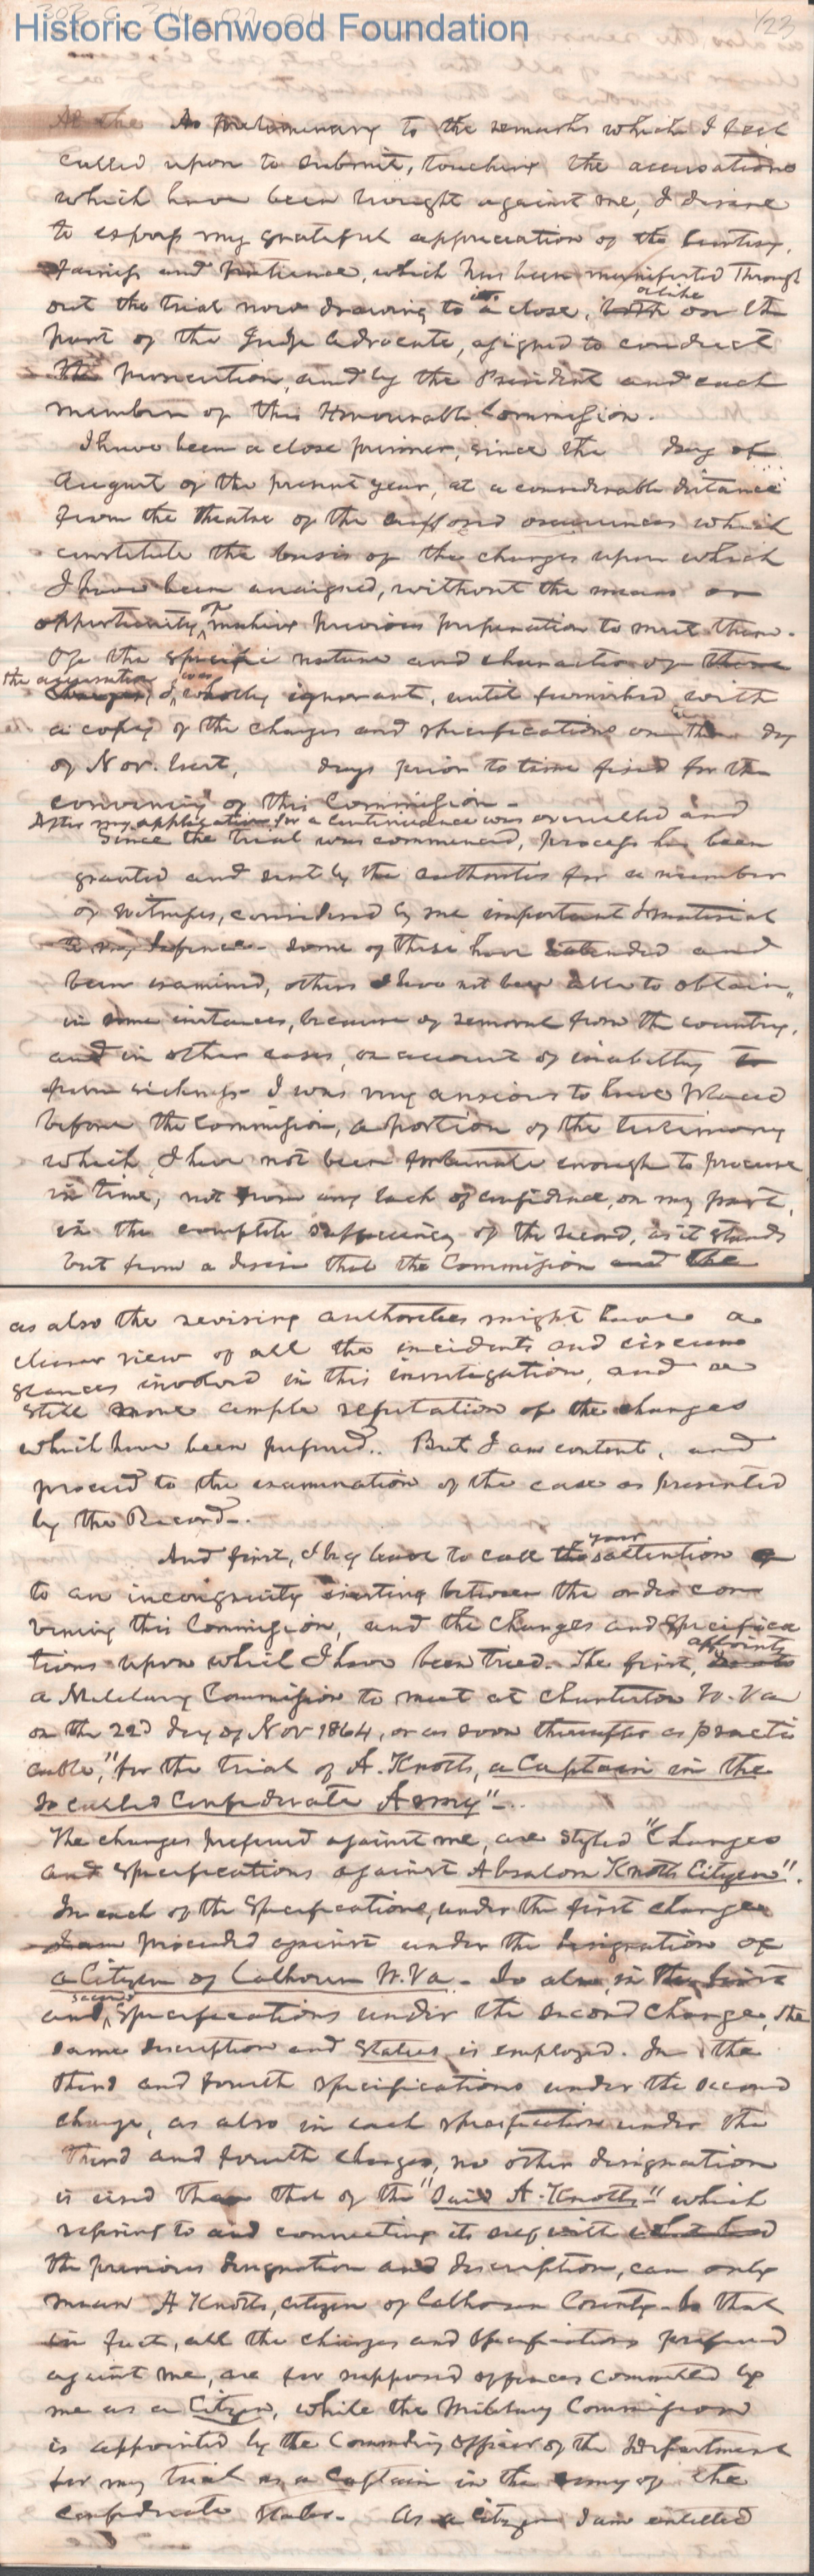 Historic Glenwood Foundation
1/23
At the As preliminary to the remarks which I feel
called upon to submit, touching the accusations
which have been brought against me, I desire
to express my grateful appreciation of the courtesy,
fairness and patience, which has been manifested through
out the trial now drawing to its a close, both alike on the
part of the Judge Advocate, assigned to conduct
the prosecution, and by the President and each
member of this Honourable Commission.
I have been a close prisoner, since the day of
August of the present year, at a considerable distance
from the theatre of the supposed occurrences which
constitute the basis of the charges upon which
I have been arraigned, without the means or
opportunity of making previous preparation to meet them.
Of the specific nature and character of these
the accusation charges, I was wholly ignorant, until furnished with
a copy of the charges and specifications on the day
of Nov. last, days prior to time fixed for the
convening of this Commission -
After my application for a continuance was overruled and
Since the trial was commenced, process has been
granted and sent by the authorities for a number
of witnesses, considered by me important & material
to my defence - some of these have attended and
been examined, others I have not been able to obtain,
in some instances, because of removal from the country,
and in other cases, on account of inability to
from sickness - I was very anxious to have placed
before the Commission, a portion of the testimony
which I have not been fortunate enough to procure
in time, not from any lack of confidence, on my part,
in the complete sufficiency of the record, as it stands
but from a desire that the Commission and the
as also the revising authorities might have a
clearer view of all the incidents and circum
stances involved in this investigation, and a
still more ample refutation of the charges
which have been prefered. But I am content, and
proceed to the examination of the case as presented
by the Record.
And first, I beg leave to call the your attention
to an incongruity existing between the order con
vening this Commission, and the charges and specifica
tions upon which I have been tried. The first, appoints
a Military Commission to meet at Charleston W. Va
on the 22d day of Nov 1864, or as soon thereafter as practi
cable, "for the trial of A. Knotts, a Captain in the
so called Confederate Army" -
The charges prefered against me, are styled "Charges
and specifications against Absalom Knotts Citizen".
In each of the Specifications, under the first charge
I am proceeded against under the designation of
a Citizen of Calhoun W. Va - So also, in the first
and second specifications under the second charge, the
same description and status is employed. In the
third and fourth specifications under the second
charge, as also in each specification under the
third and fourth charges, no other designation
is used than that of the "Said A. Knotts" which
refering to and connecting its self with
the previous designation and description, can only
mean A Knotts, citizen of Calhoun County - So that
in fact, all the charges and specifications prefered
against me, are for supposed offences committed by
me as a Citizen, while the Military Commission
is appointed by the Commdng Officer of the Department
for my trial as a Captain in the army of the
Confederate States. As a citizen I am entitled